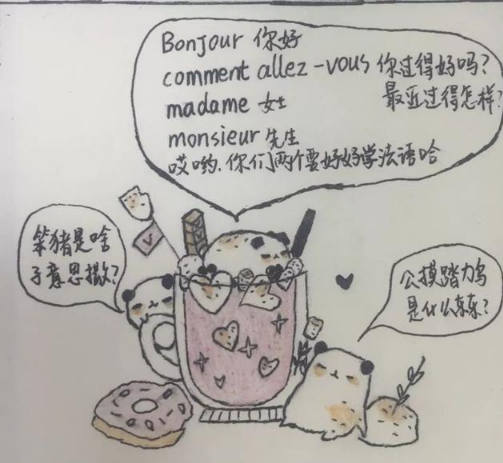 Bonjour 你好
comment allez-vous 你过得好吗?
madame 女士 最近过得怎样?
monsieur 先生
哎哟.你们两个要好好学法语哈
笨猪是啥
子意思撒?
公摸踏力乌
是什么东东?